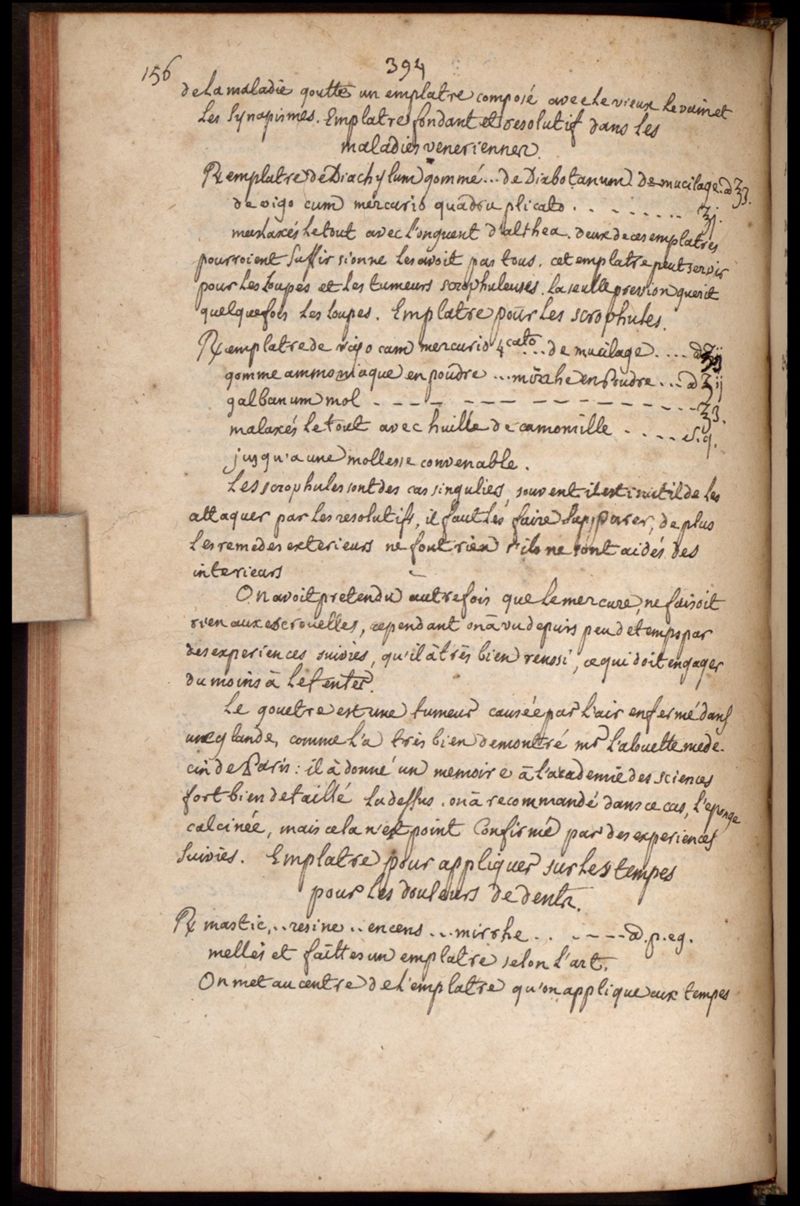 156
394
de la maladie goutte un emplatre composé avec le vieux levain et
les Synapismes. Emplatre fondant et resolutif dans les
maladies veneriennes.
℞ emplatre de Diachylum gommé... de Diabotanum de mucilage. a ʒ3.
de vigo cum mercurio quadruplicato . . - . . . . . ʒj.
malaxés le tout avec l'onguent d'althea. deux de ces emplatres
pourroient suffir si on ne les avoit pas tous. cet emplatre peut servir
pour les loupes et les tumeurs scrophuleuses. la seule pression guerit
quelquefois les loupes. Emplatre pour les scrophules.
℞ emplatre de vigo cum mercurio 4cato... de mucilage ....
gomme ammoniaque en poudre ... mirrhe en Poudre ... a ʒij
galbanum mol - - - - - - - - - - - . . . ʒ3.
malaxés le tout avec huille de camomille . . . . S.q.
jusqu'a une mollesse convenable.
Les scrophules sont des cas singuliés, souvent il est inutil de les
attaquer par les resolutifs, il faut les faire supparer, de plus
les remedes exterieurs ne font rien s'ils ne sont aidés des
interieurs
On avoit pretendu autrefois que le mercure, ne faisoit
rien aux escrouelles, cependant on a vu depuis peu de temps par
des experiences suivies, qu'il à très bien reussi, ce qui doit engager
du moins à le tenter.
Le gouetre est une tumeur causée par l'air enfermé dans
une glande, comme l'a très bien demontré mr. lalouette mede-
cin de Paris: il à donné un memoire à l'academie des sciences
fort bien detaillé la dessus. on a recommandé dans ce cas, l'eponge
calcinée, mais cela n'est point Confirmé par des experiences
suivies. Emplatre pour appliquer sur les tempes
pour les douleurs de dents.
℞ mastic,.. resine .. encens ... mirrhe . . . - - - - a. p. eg.
mellés et faittes un emplatre selon l'art.
On met au centre de l'emplatre qu'on applique aux tempes